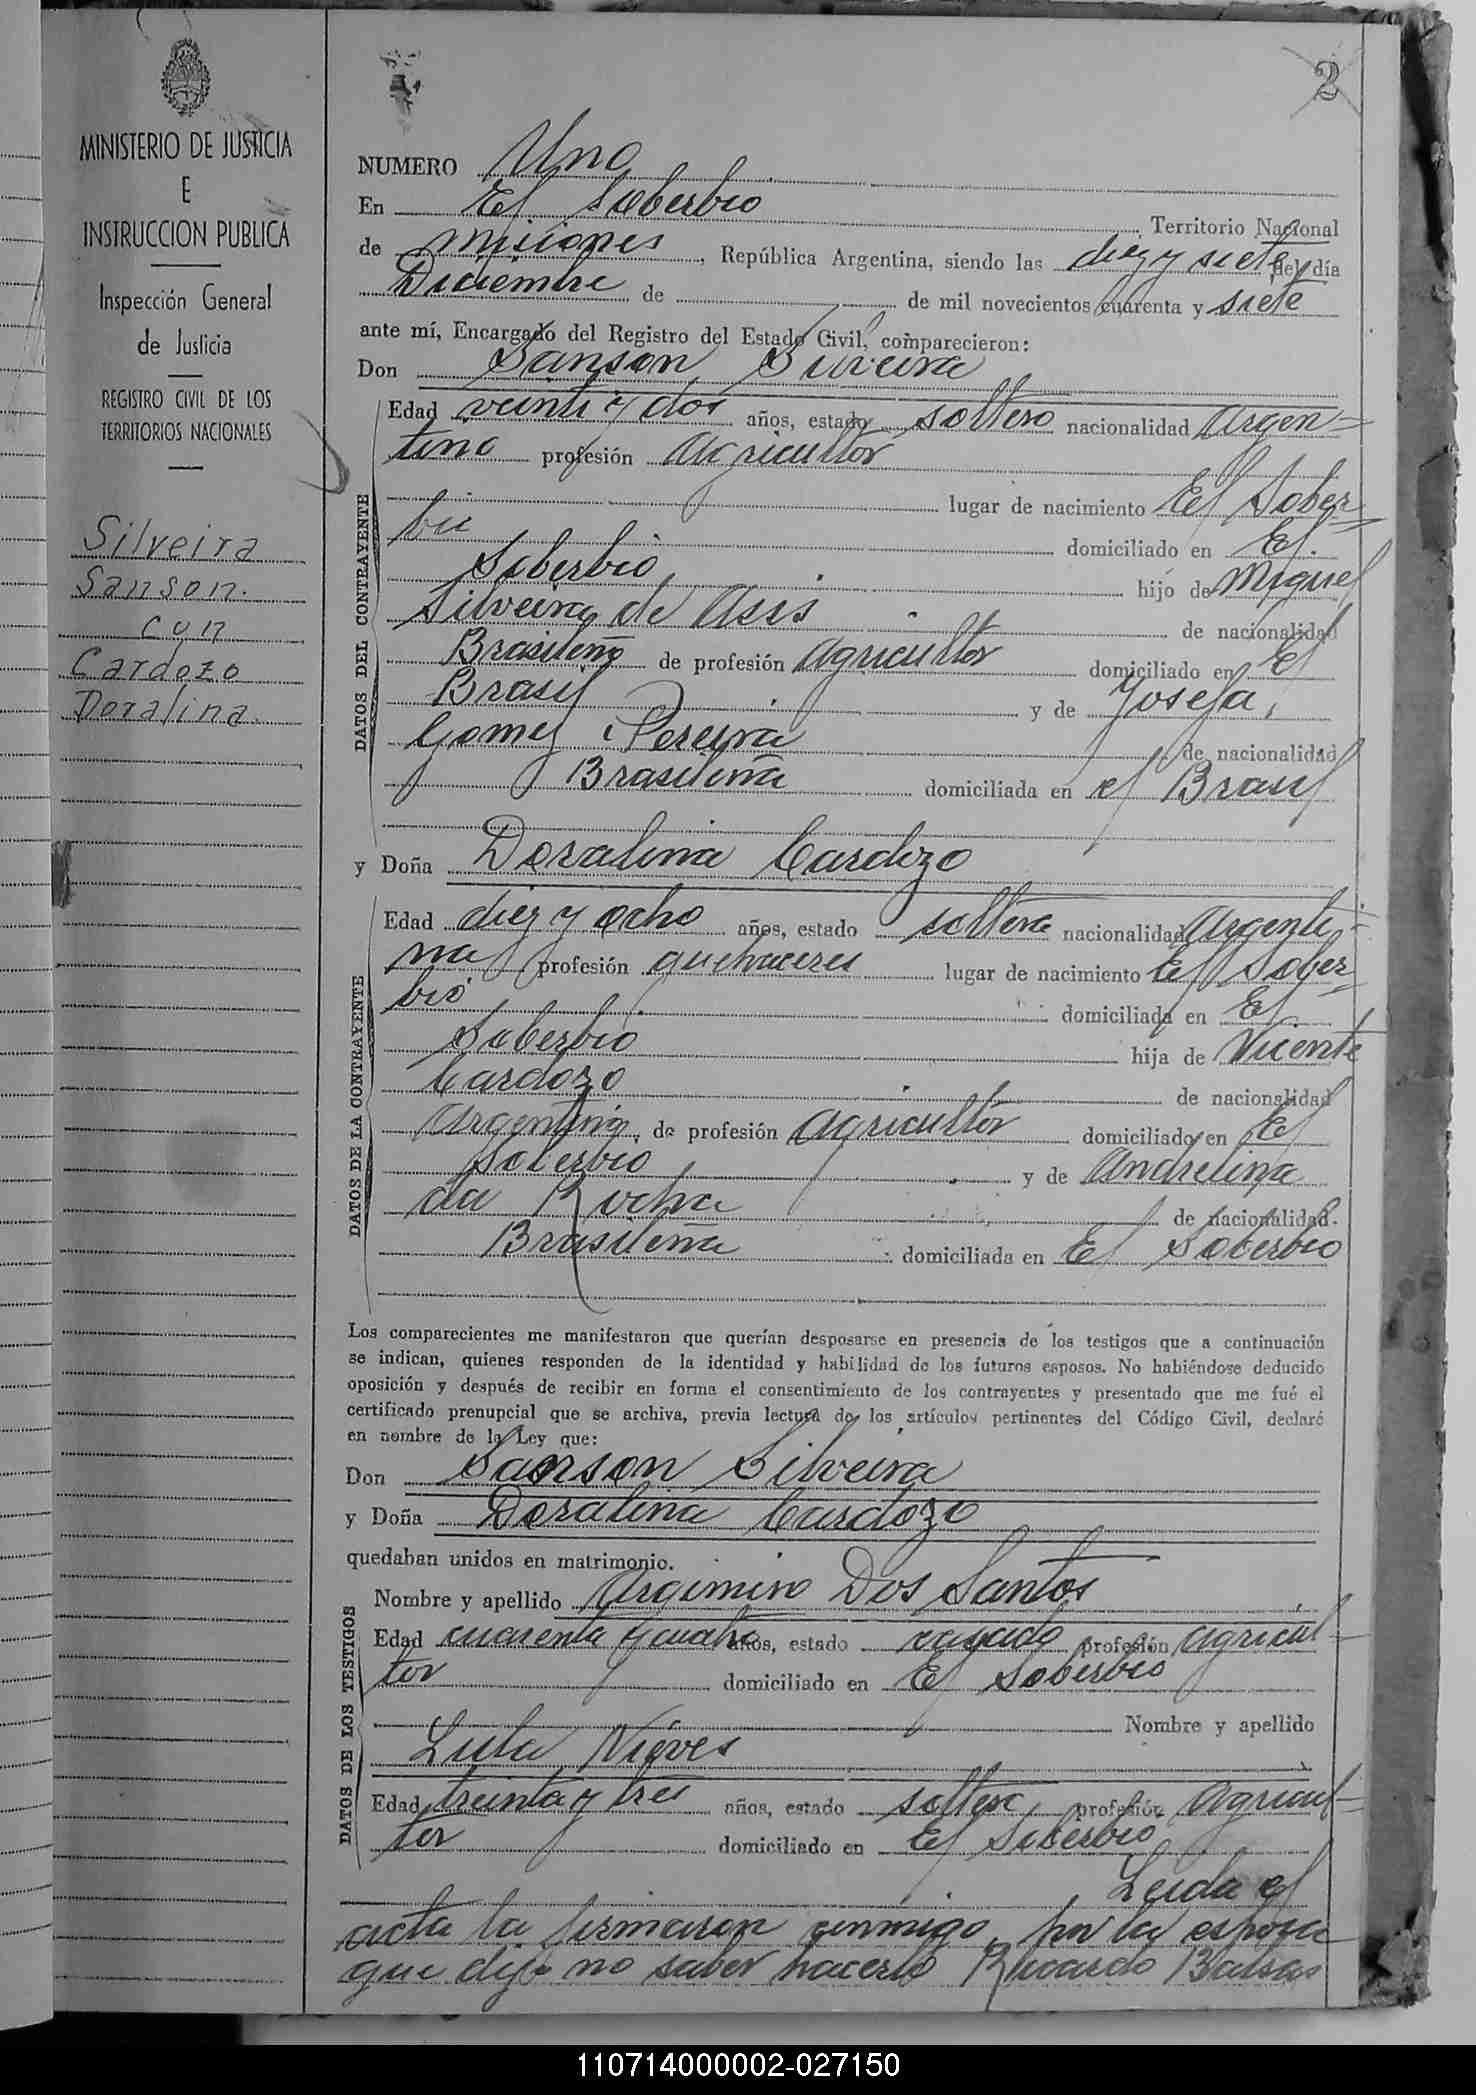 2
MINISTERIO DE JUSTICIA
E
INSTRUCCION PUBLICA
Inspección General
de Justicia
REGISTRO CIVIL DE LOS
TERRITORIOS NACIONALES
Silveira
Sanson.
con
Cardozo
Doralina.
NUMERO Uno
En El Soberbio Territorio Nacional
de Misiones, República Argentina, siendo las diez y siete del día
Diciembre de de mil novecientos cuarenta y siete
ante mí, Encargado del Registro del Estado Civil, comparecieron:
Don Sanson Silveira
DATOS DEL CONTRAYENTE
Edad veinti y dos años, estado soltero nacionalidad Argen-
tino profesión Agricultor
lugar de nacimiento El Sober-
bio domiciliado en El
Soberbio hijo de Miguel
Silveira de Asis de nacionalidad
Brasileño de profesión Agricultor domiciliado en El
Brasil y de Josefa,
Gomez Pereyra de nacionalidad
Brasileña domiciliada en el Brasil
y Doña Doralina Cardozo
DATOS DE LA CONTRAYENTE
Edad diez y ocho años, estado soltera nacionalidad Argenti-
na profesión quehaceres lugar de nacimiento El Sober-
bio domiciliada en El
Soberbio hija de Vicente
Cardozo de nacionalidad
Argentino, de profesión Agricultor domiciliado en El
Soberbio y de Andrelina
da Rocha de nacionalidad.
Brasileña domiciliada en El Soberbio
Los comparecientes me manifestaron que querían desposarse en presencia de los testigos que a continuación
se indican, quienes responden de la identidad y habilidad de los futuros esposos. No habiéndose deducido
oposición y después de recibir en forma el consentimiento de los contrayentes y presentado que me fué el
certificado prenupcial que se archiva, previa lectura de los artículos pertinentes del Código Civil, declaré
en nombre de la Ley que:
Don Sanson Silveira
y Doña Doralina Cardozo
quedaban unidos en matrimonio.
DATOS DE LOS TESTIGOS
Nombre y apellido Argimiro Dos Santos
Edad cuarenta y cuatro años, estado casado profesión Agricul-
tor domiciliado en El Soberbio
Nombre y apellido
Lula Nieves
Edad treinta y tres años, estado soltero profesión Agricul-
tor domiciliado en El Soberbio
Leida el
acta la firmaron conmigo, por la esposa
que dijo no saber hacerlo Ricardo Balsas
110714000002-027150